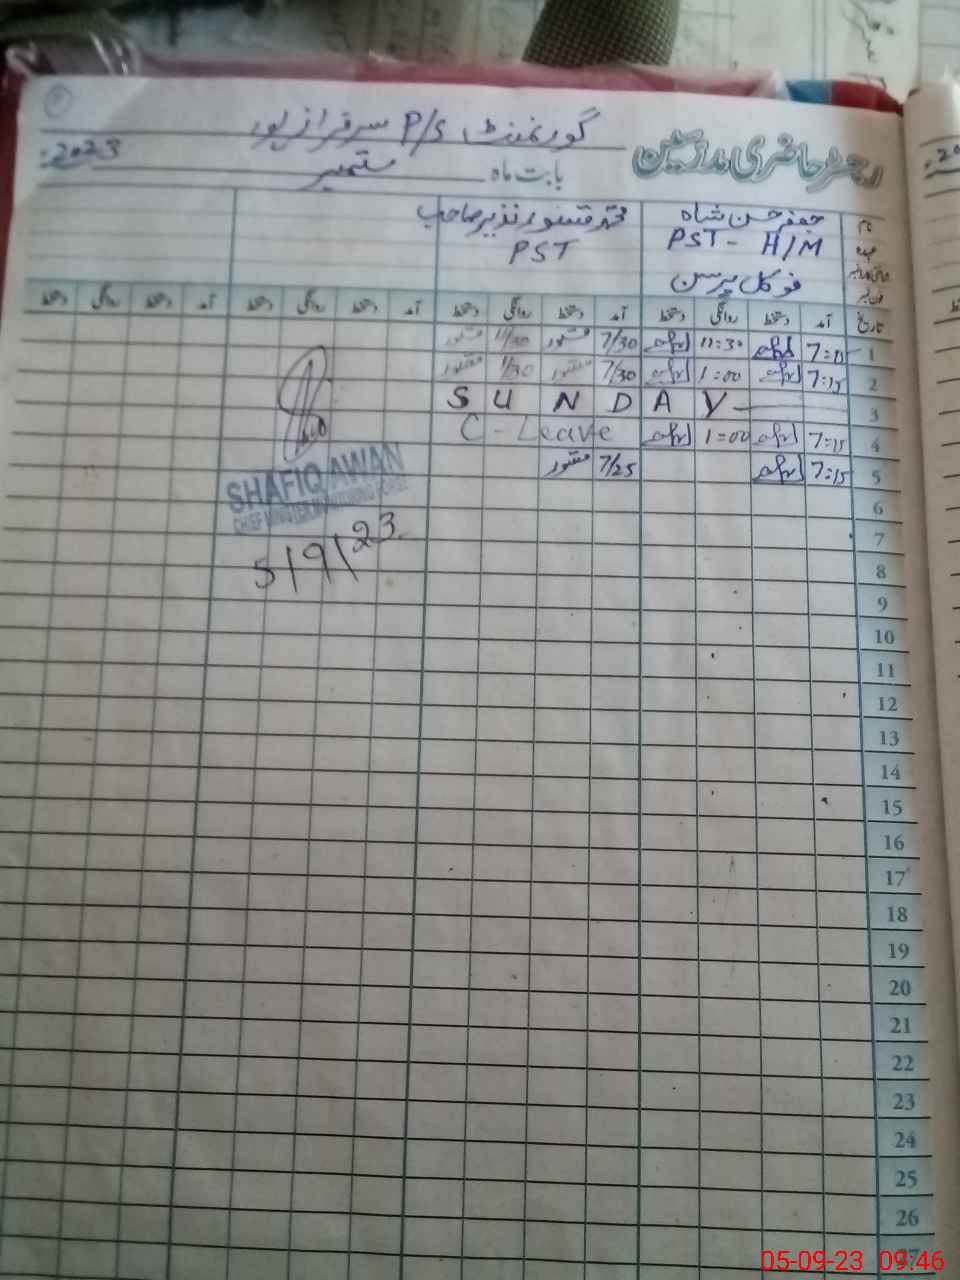 گورنمنٹ P/S سرفراز پور
رجسٹر حاضری ملازمین
بابت ماہ ستمبر 2023
نام جعفر حسن شاہ
عہدہ PST - H/M PST
فوکل پرسن
تاریخ آمد دستخط روانگی دستخط آمد دستخط روانگی دستخط آمد دستخط روانگی دستخط آمد دستخط روانگی دستخط
1 7:15 11:30 7/30 11/30
2 7:15 1:00 7/30 1/30
3 SUNDAY
4 7:15 1=00 C-Leave
5 7:15 7/25
6
7
8
9
10
11
12
13
14
15
16
17
18
19
20
21
22
23
24
25
26
27
SHAFIQ AWAN
CHIEF MINISTER MONITORING FORCE
5/9/23
05-09-23 09:46